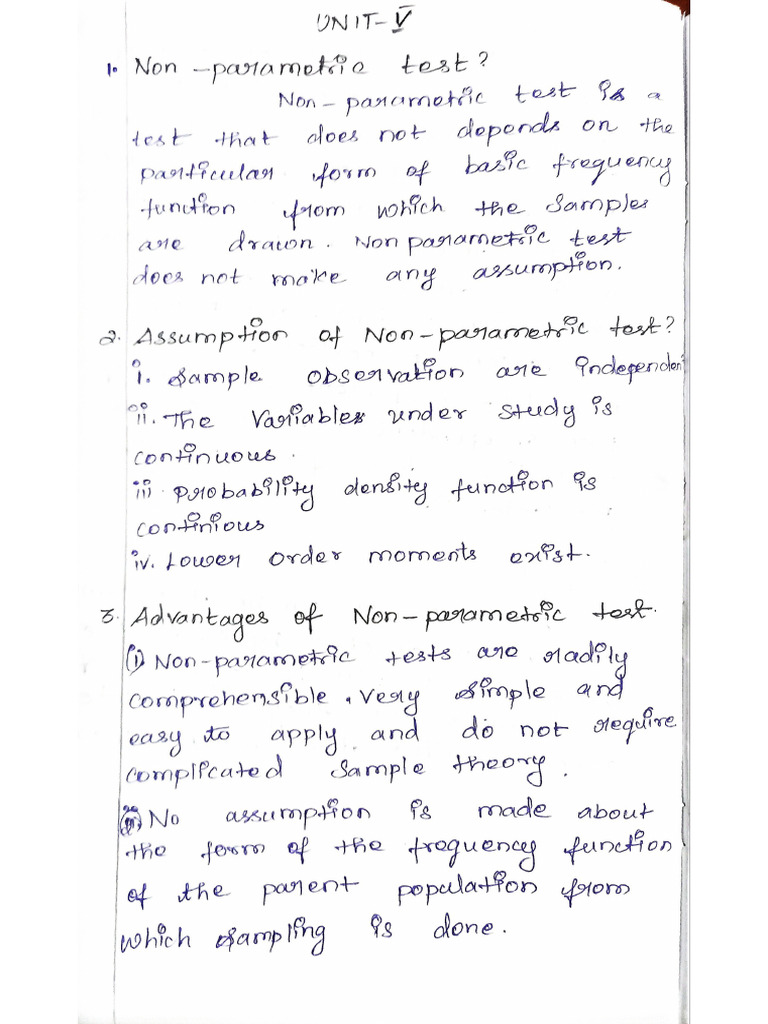 UNIT-V
1. Non-parametric test?
Non-parametric test is a
test that does not depends on the
particular form of basic frequency
function from which the samples
are drawn. Non parametric test
does not make any assumption.
2. Assumption of Non-parametric test?
i. Sample observation are independent
ii. The Variables under study is
continuous.
iii. Probability density function is
continious
iv. Lower order moments exist.
3. Advantages of Non-parametric test.
(i) Non-parametric tests are radily
comprehensible, very simple and
easy to apply and do not require
complicated sample theory.
(ii) No assumption is made about
the form of the frequency function
of the parent population from
which sampling is done.